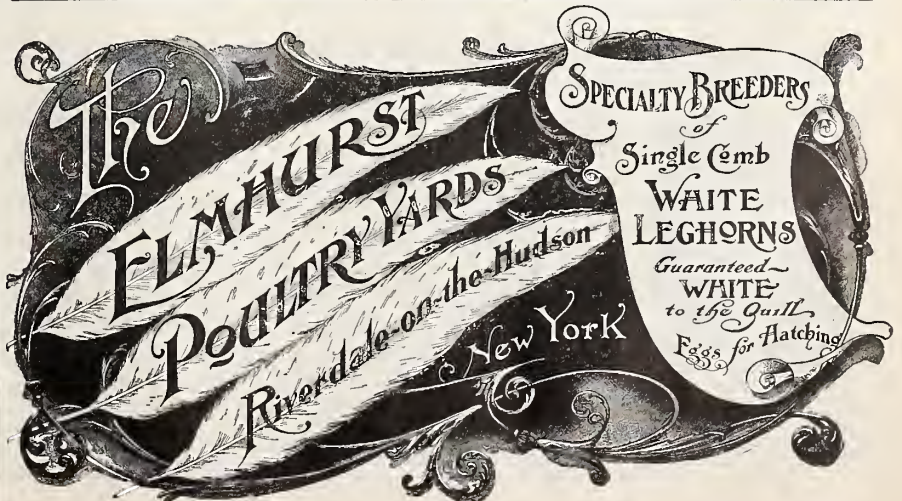 The
ELMHURST
POULTRY YARDS
Riverdale-on-the-Hudson
New York
SPECIALTY BREEDERS
of
Single Comb
WHITE
LEGHORNS
Guaranteed
WHITE
to the Quill
Eggs for Hatching